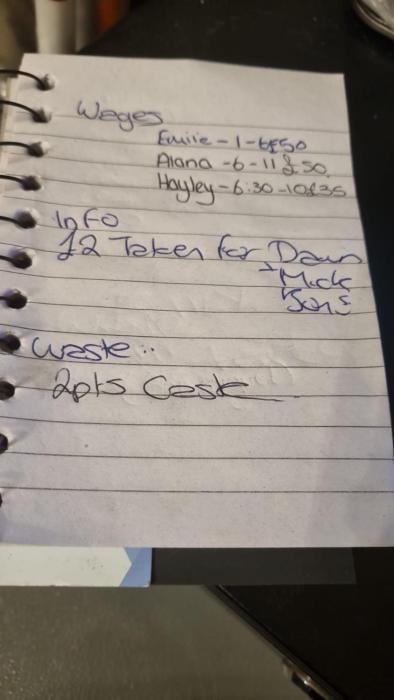 Wages
Emilie - 1 - 6 £50
Alana - 6 - 11 £50.
Hayley - 6:30 - 10 £35
Info
£2 Taken for Dawn
+ Mick
Sons
Waste:.
2pts Cask